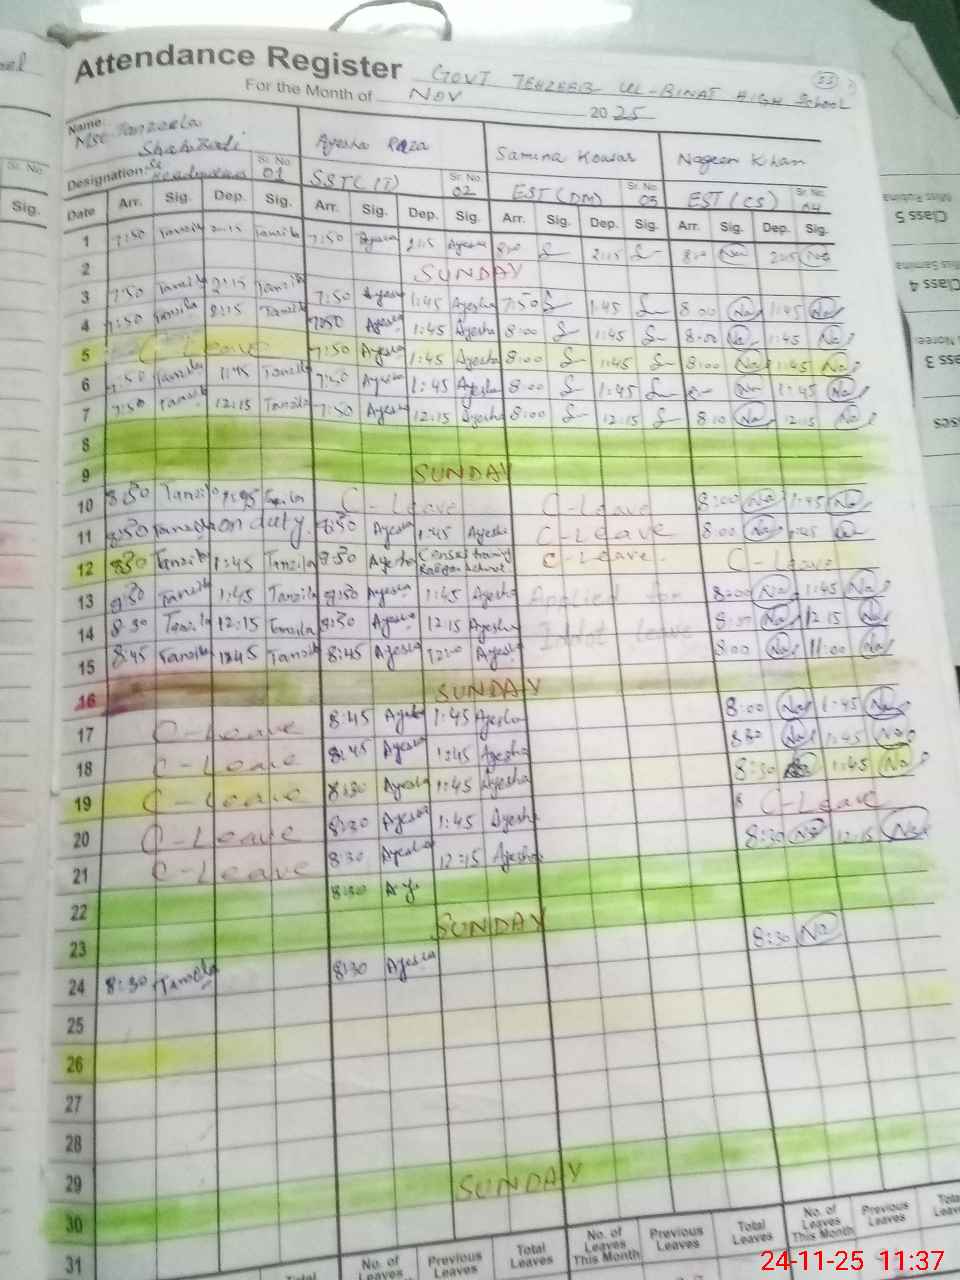 Attendance Register GOVT TEHZEEB UL-BINAT HIGH School
For the Month of NOV 2025
Name: Mst Tanzeela Shahzadi Ayesha Raza Samina Kousar Nageen Khan
Designation: Sr. No. 01 SSTC(IT) Sr. No. 02 EST(DM) Sr. No. 03 EST(CS) Sr. No. 04
Date Arr. Sig. Dep. Sig. Arr. Sig. Dep. Sig. Arr. Sig. Dep. Sig. Arr. Sig. Dep. Sig.
1 7:50 Tanzila 2:15 Tanzila 7:50 Ayesha 2:15 Ayesha 2:15
2 SUNDAY
3 7:50 Tanzila 2:15 Tanzila 7:50 Ayesha 1:45 Ayesha 7:50 1:45 8:00 Na 1:45 Na
4 7:50 Tanzila 2:15 Tanzila 7:50 Ayesha 1:45 Ayesha 8:00 1:45 8:00 Na 1:45 Na
5 C Leave 7:50 Ayesha 1:45 Ayesha 8:00 1:45 8:00 Na 1:45 Na
6 7:50 Tanzila 1:45 Tanzila 7:50 Ayesha 1:45 Ayesha 8:00 1:45 Na 1:45 Na
7 7:50 Tanzila 12:15 Tanzila 7:50 Ayesha 12:15 Ayesha 8:00 12:15 8:10 Na 12:15 Na
8
9 SUNDAY
10 8:50 Tanzila C-Leave C-Leave 8:00 Na 1:45 Na
11 8:50 Tanzila on duty 8:50 Ayesha 1:45 Ayesha C-Leave 8:00 Na 1:45 Na
12 8:30 Tanzila 1:45 Tanzila 8:30 Ayesha training C-Leave. C-Leave
13 8:30 Tanzila 1:45 Tanzila 8:30 Ayesha 1:45 Ayesha Applied for 8:00 Na 1:45 Na
14 8:30 Tanzila 12:15 Tanzila 8:30 Ayesha 12:15 Ayesha leave Na 12:15 Na
15 8:45 Tanzila Tanzila 8:45 Ayesha Ayesha 8:00 Na 11:00 Na
16 SUNDAY
17 C-Leave 8:45 Ayesha 1:45 Ayesha 8:00 Na 1:45 Na
18 C-Leave 8:45 Ayesha 1:45 Ayesha 830 Na 1:45 Na
19 C-Leave 8:30 Ayesha 1:45 Ayesha 8:30 1:45 Na
20 C-Leave 8:30 Ayesha 1:45 Ayesha C-Leave
21 C-Leave 8:30 Ayesha 12:15 Ayesha 8:30 Na 12:15 Na
22 8:30 Ay.
23 SUNDAY
24 8:30 Tanzila 8:30 Ayesha 8:30 Na
25
26
27
28
29
30 SUNDAY
31
No. of Leaves Previous Leaves Total Leaves No. of Leaves This Month Previous Leaves Total Leaves No. of Leaves This Month Previous Leaves
Sr. No.
Sig.
Class 5
Class 4
24-11-25 11:37